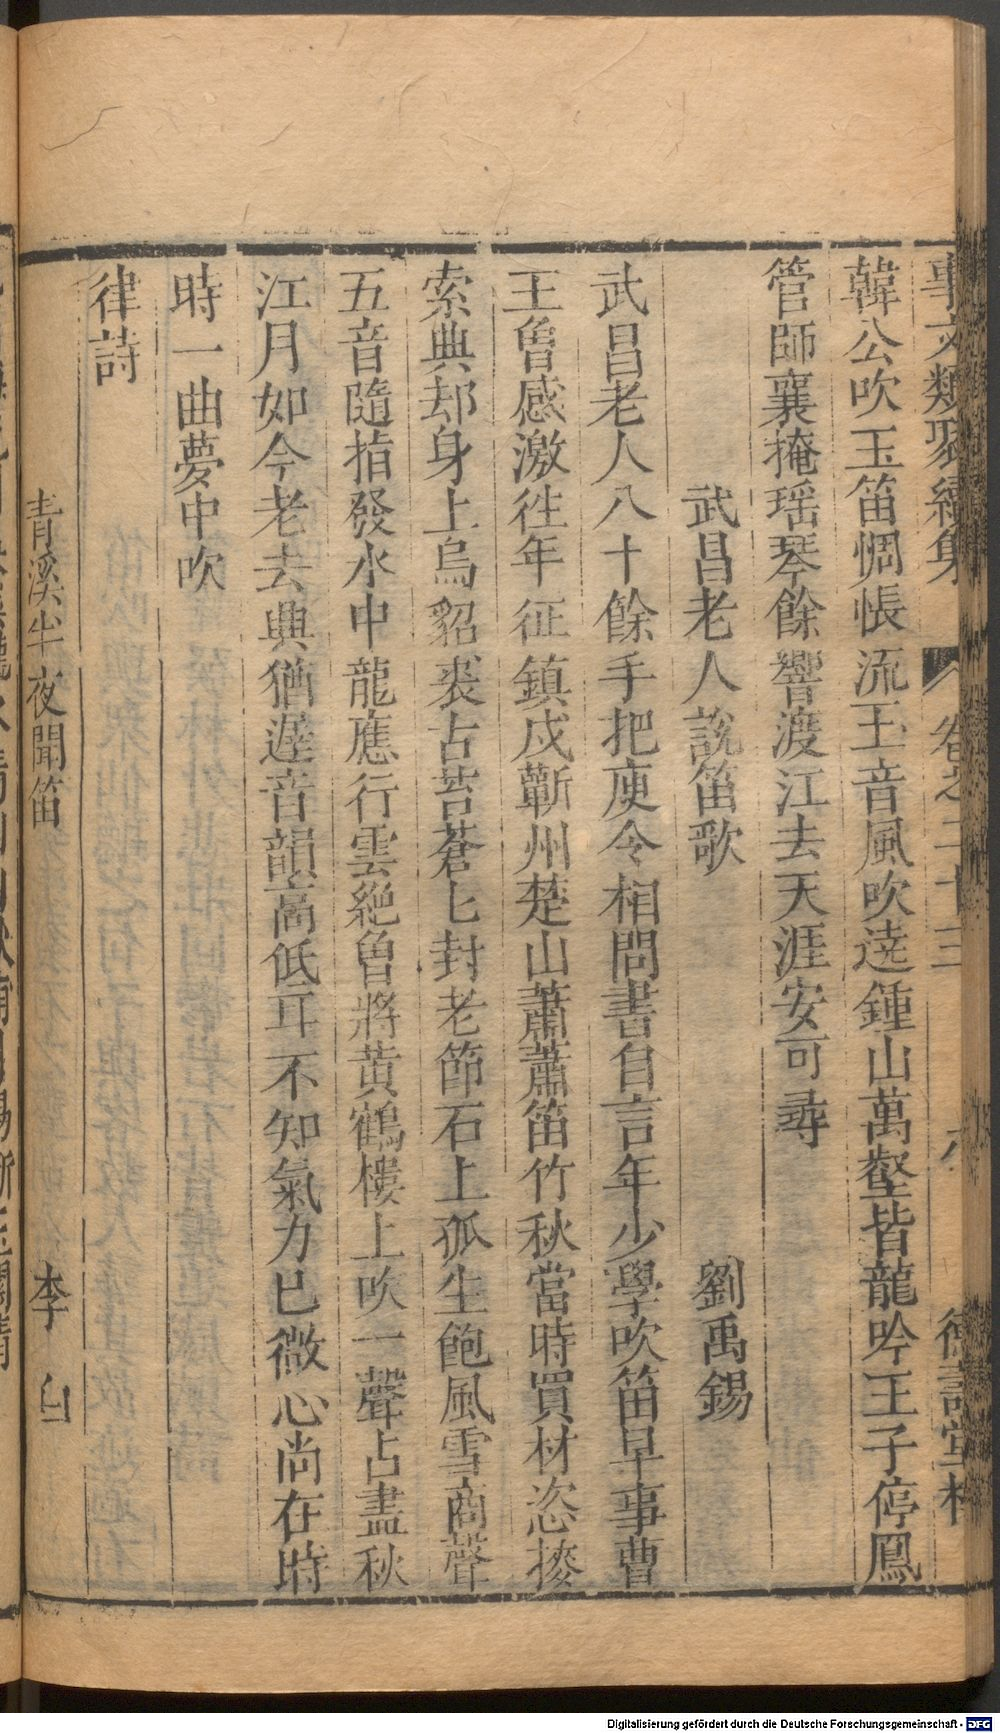 事文類聚續集 卷之二十三 六 德壽堂梓
韓公吹玉笛惆悵流玉音風吹遶鍾山萬壑皆龍吟王子停鳳
管師襄掩瑶琴餘響渡江去天涯安可尋
武昌老人說笛歌 劉禹錫
武昌老人八十餘手把庾令相問書自言年少學吹笛早事曹
王曾感激往年征鎮戍蘄州楚山蕭蕭笛竹秋當時買材恣搜
索典却身上烏貂裘古苔蒼匕封老節石上孤生飽風雪商聲
五音隨指發水中龍應行雲絶曾將黃鶴樓上吹一聲占盡秋
江月如今老去興猶遲音韻高低耳不知氣力已微心尚在時
時一曲夢中吹
律詩
青溪半夜聞笛 李白
Digitalisierung gefördert durch die Deutsche Forschungsgemeinschaft - DFG